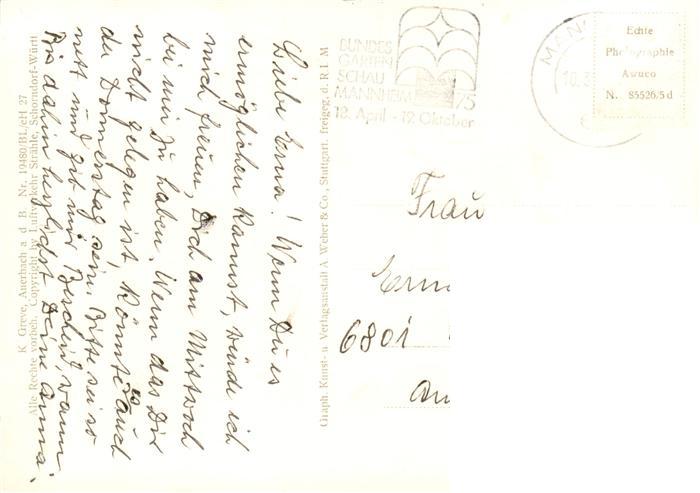 Liebe Erna! Wenn Du es
ermöglichen kannst, würde ich
mich freuen, Dich am Mittwoch
bei mir zu haben. Wenn das Dir
nicht gelegen ist, könnte es auch
der Donnerstag sein. Bitte sei so
nett und gib mir Bescheid, wann.
Bis dahin herzlichst Deine Anna.
K Greve, Auerbach a d B. Nr. 19480/BL/eH 27
Alle Rechte vorbeh. Copyright by Luftverkehr Strähle, Schorndorf-Württ
Graph. Kunst- u Verlagsanstalt A Weber & Co., Stuttgart. freigeg. d. R L M
BUNDES
GARTEN
SCHAU
MANNHEIM 75
18. April - 19. Oktober
MANN
10.3
Echte
Photographie
Awuco
N. 85526/5 d
Frau
Erna
6801